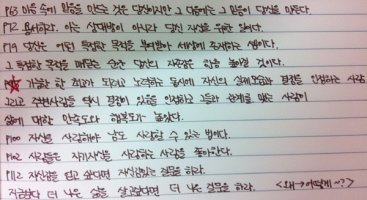 P63 마음 속에 믿음을 만드는 것은 당신이지만 그 다음에는 그 믿음이 당신을 만든다.
P72 용서하라. 이는 상대방이 아니라 당신 자신을 위한 일이다.
P79 당신은 어떤 특별한 목적을 부여받아 세상에 존재하는 셈이다.
그 특별한 목적을 깨닫는 순간 당신의 자존감은 한층 높아질 것이다.
가능한 한 최고가 되려고 노력하는 동시에 자신의 실제모습과 결점을 인정하는 사람
그리고 주변사람들 역시 결점이 있음을 인정하고 그들과 관계를 맺는 사람이
삶에 대한 만족도와 행복도가 높았다.
P100 자신을 사랑해야 남도 사랑할 수 있는 법이다.
P102 사람들은 자기자신을 사랑하는 사람을 좋아한다.
P112 자신감을 얻고 싶다면 자신감있는 질문을 하라.
지금보다 더 나은 삶을 살고싶다면 더 나은 질문을 하라. <왜→어떻게~?>